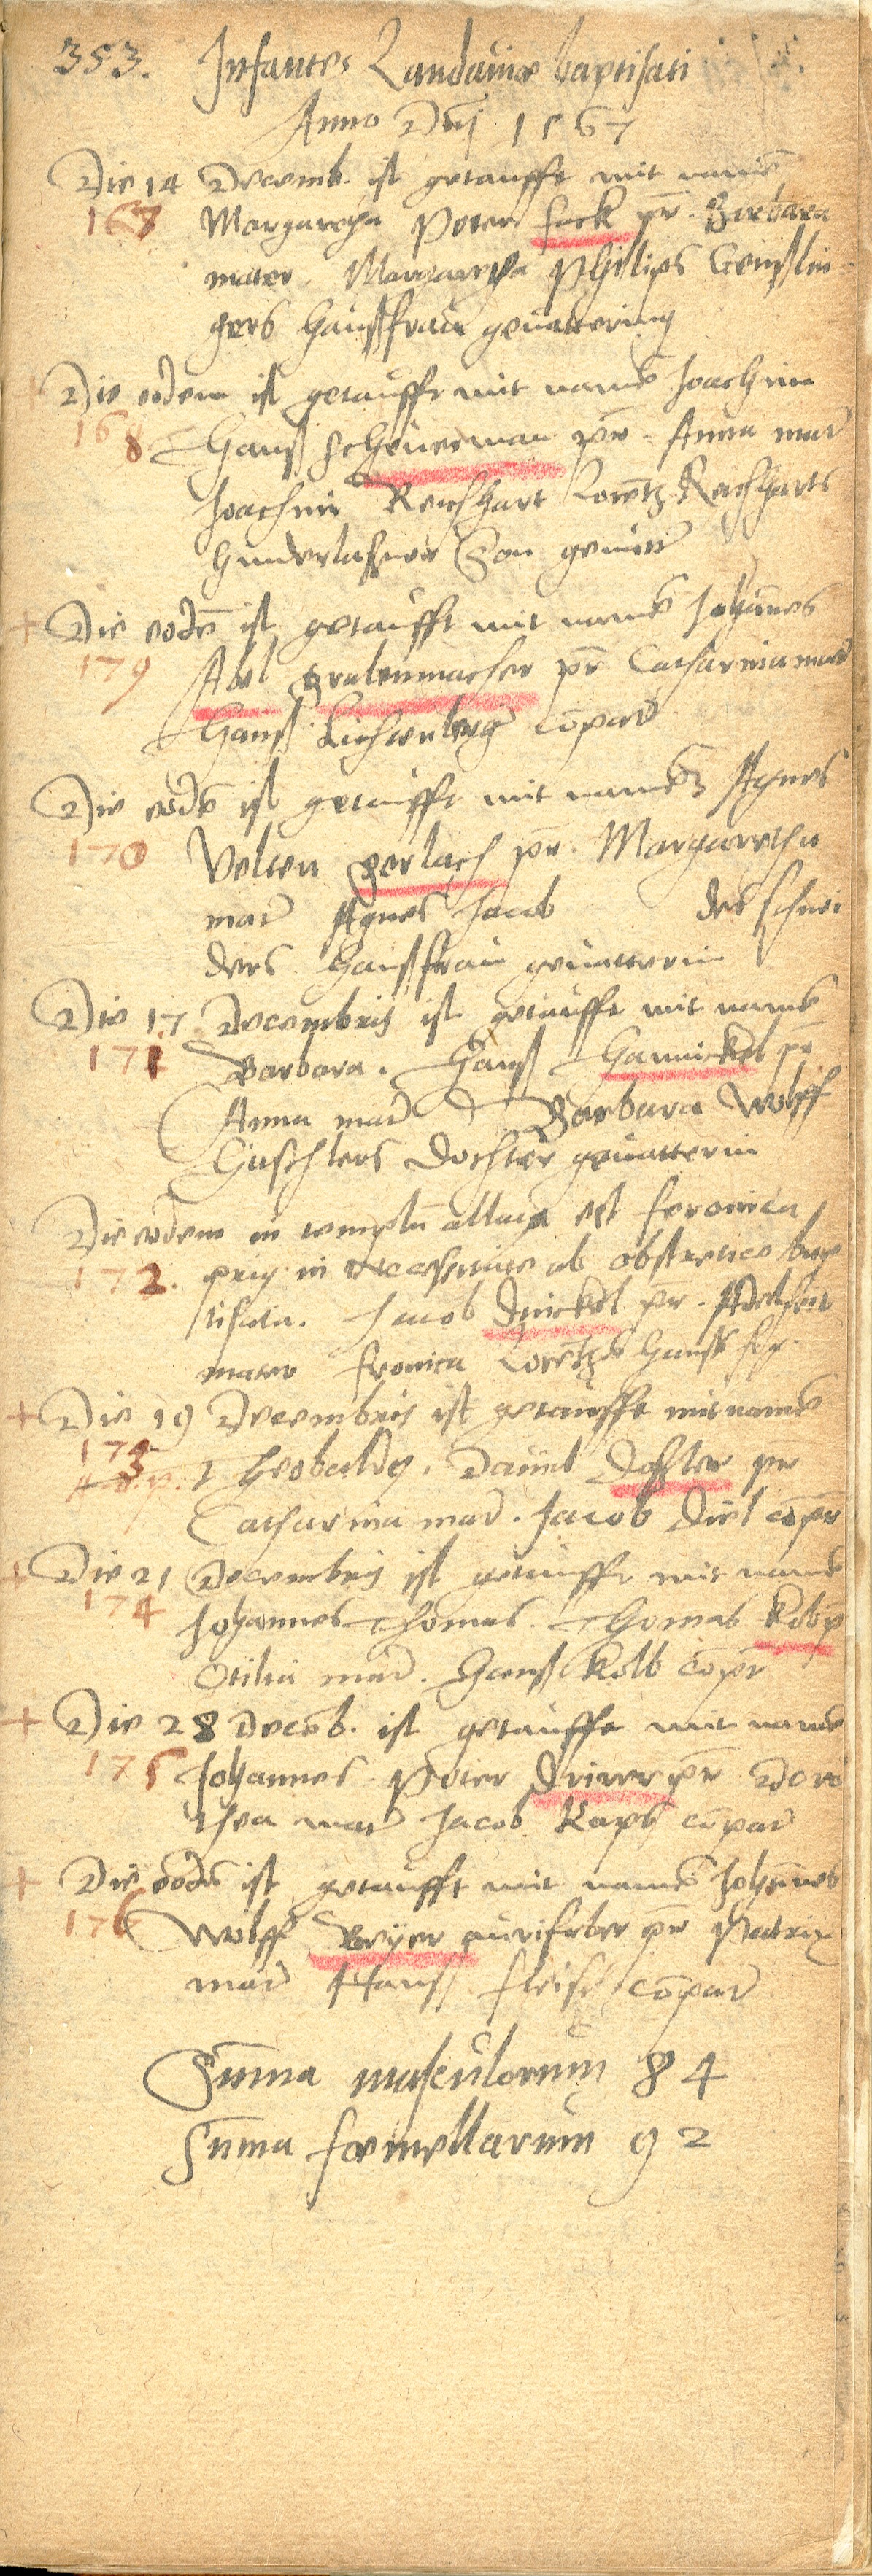 353. Infantes Landauiæ baptisati
Anno Dnj 1567
Die 14 Decemb. ist getaufft mit namē
167 Margaretha Peter sack pr. Barbara
mater. Margaretha Philips Genßlin-
gers haußfrau geuatterinn
Die eodem ist getaufft mit namē Joachim
168 Hanß scheuerman pr. Anna mar
Joachim Reichhart Lorētz Reichharts
hinderlaßner Son geuatter
+ Die eodē ist getaufft mit namē Johānes
179 Abel grabenmacher pr Catharina mar
Hanß Liechtenberg cōpar
Die eodē ist getaufft mit namen Agnes
170 Velten gerlach pr. Margaretha
mar Agnes Jacob des schnei
ders haußfrau geuatterin
Die 17 Decembris ist getaufft mit namē
171 Barbara. Hanß Hannickel pr
Anna mar Barbara Wolff
dochter geuatterin
Die eodem in templū allata est feronica
172. prius in necessitate ab obstetrice bap
tisata. Jacob Quickel pr. Adelheit
mater fronica Lorētzē hanß
+ Die 19 Decembris ist getaufft mit namē
173 Theobaldus. Daniel Doster pr
Catharina mar. Jacob Diel cōpr
+ Die 21 Decembris ist getaufft mit namē
174 Johannes Thomas. Thomas Kolb pr
Otilia mar. Hanß Kolb cōpr
+ Die 28 Decēb. ist getaufft mit namē
175 Johannes Peter pr Doro
thea mar Jacob Raps cōpar
+ Die eodē ist getaufft mit namē Johānes
176 Wolff Beyer aurifaber pr
mar Hanß fleisch cōpar
Sūma masculorum 84
Sūma fœmellarum 92